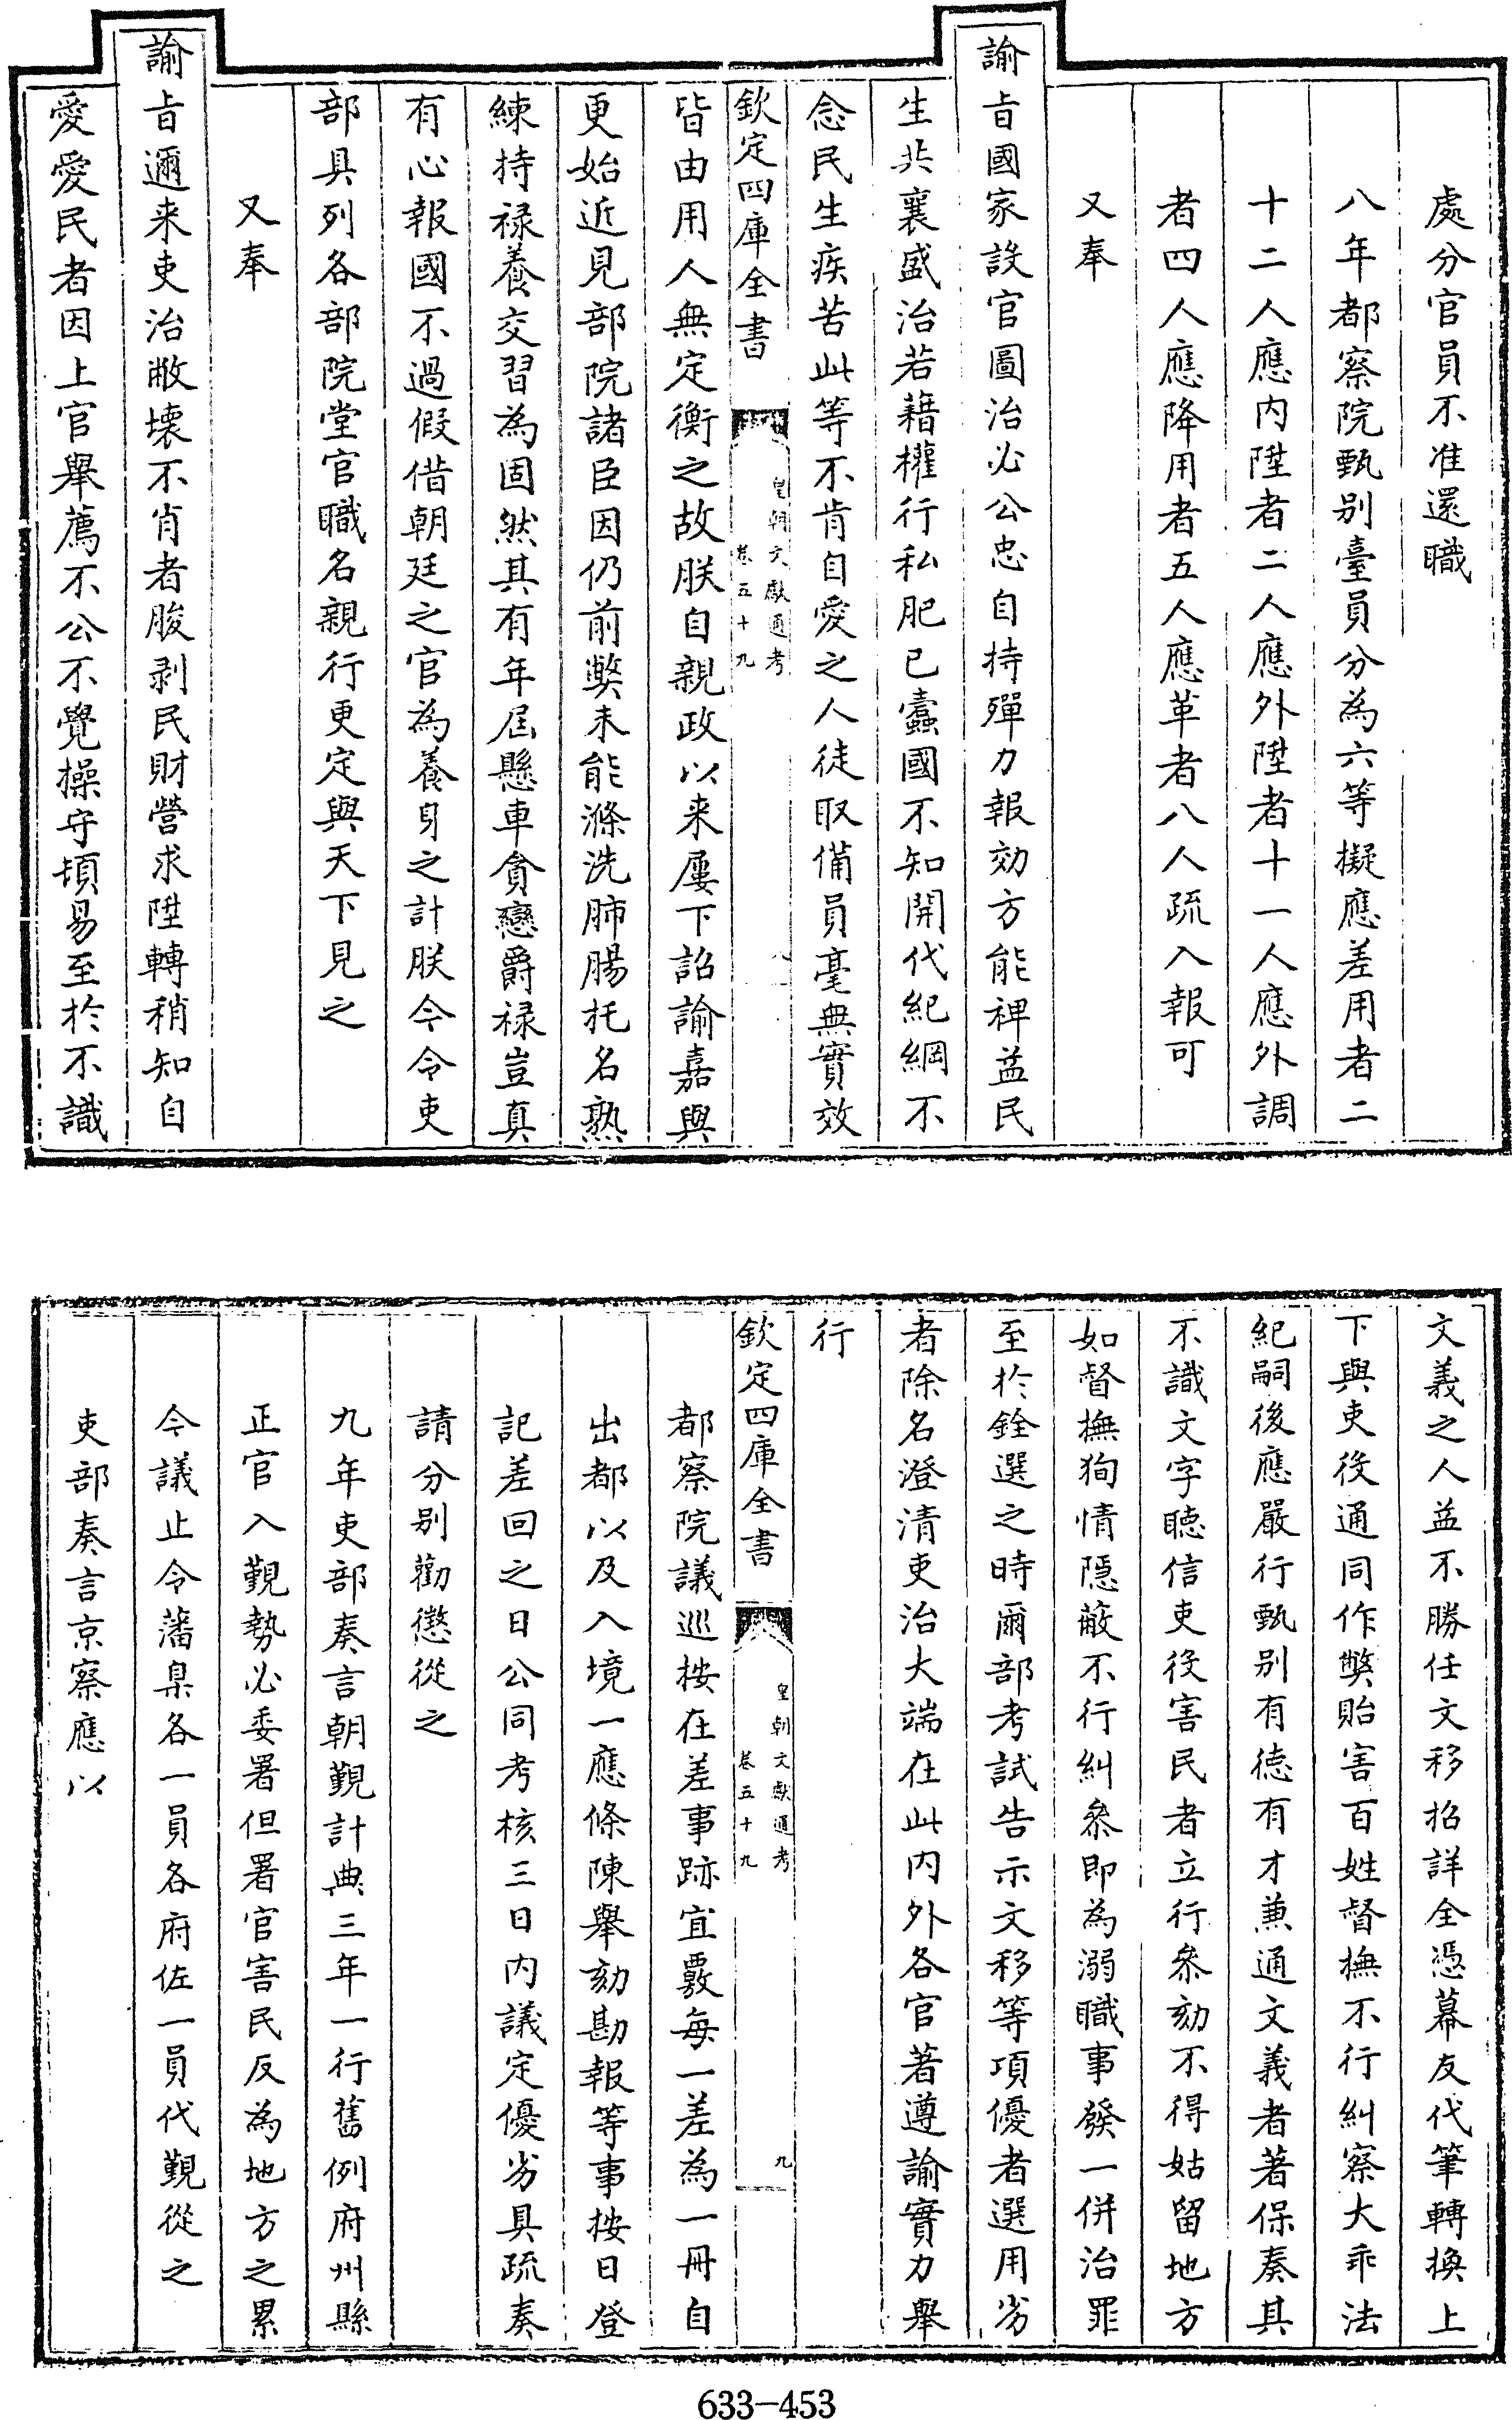 處分官員不准還職
八年都察院甄别臺員分為六等擬應差用者二
十二人應内陞者二人應外陞者十一人應外調
者四人應降用者五人應革者八人疏入報可
又奉
諭㫖國家設官圖治必公忠自持殫力報効方能裨益民
生共襄盛治若藉權行私肥己蠧國不知開代紀綱不
念民生疾苦此等不肯自愛之人徒取備員毫無實效
欽定四庫全書
皇朝文獻通考
卷五十九
八
皆由用人無定衡之故朕自親政以来屢下詔諭嘉與
更始近見部院諸臣因仍前弊未能滌洗肺腸托名熟
練持禄養交習為固然其有年屆懸車貪戀爵禄豈真
有心報國不過假借朝廷之官為養身之計朕今令吏
部具列各部院堂官職名親行更定與天下見之
又奉
諭㫖邇来吏治敝壊不肖者朘剥民財營求陞轉稍知自
愛愛民者因上官舉薦不公不覺操守頓易至於不識
文義之人益不勝任文移招詳全憑幕友代筆轉換上
下與吏役通同作弊貽害百姓督撫不行糾察大乖法
紀嗣後應嚴行甄别有徳有才兼通文義者著保奏其
不識文字聴信吏役害民者立行叅劾不得姑留地方
如督撫狥情隱蔽不行糾叅即為溺職事發一併治罪
至於銓選之時爾部考試告示文移等項優者選用劣
者除名澄清吏治大端在此内外各官著遵諭實力舉
行
欽定四庫全書
皇朝文獻通考
卷五十九
九
都察院議巡按在差事跡宜覈每一差為一冊自
出都以及入境一應條陳舉劾勘報等事按日登
記差回之日公同考核三日内議定優劣具疏奏
請分别勸懲從之
九年吏部奏言朝覲計典三年一行舊例府州縣
正官入覲勢必委署但署官害民反為地方之累
今議止令藩臬各一員各府佐一員代覲從之
吏部奏言京察應以
633-453